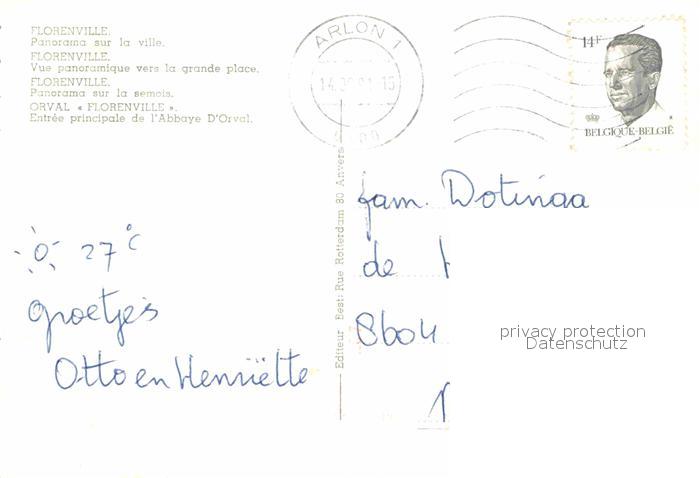 FLORENVILLE.
Panorama sur la ville.
FLORENVILLE.
Vue panoramique vers la grande place.
FLORENVILLE.
Panorama sur la semois.
ORVAL « FLORENVILLE ».
Entrée principale de l'Abbaye D'Orval.
ARLON 1
14F
BELGIQUE-BELGIË
Editeur Best: Rue Rotterdam 80 Anvers
27°C
groetjes
Otto en Henriëtte
fam. Dotinaa
de
8604
privacy protection
Datenschutz